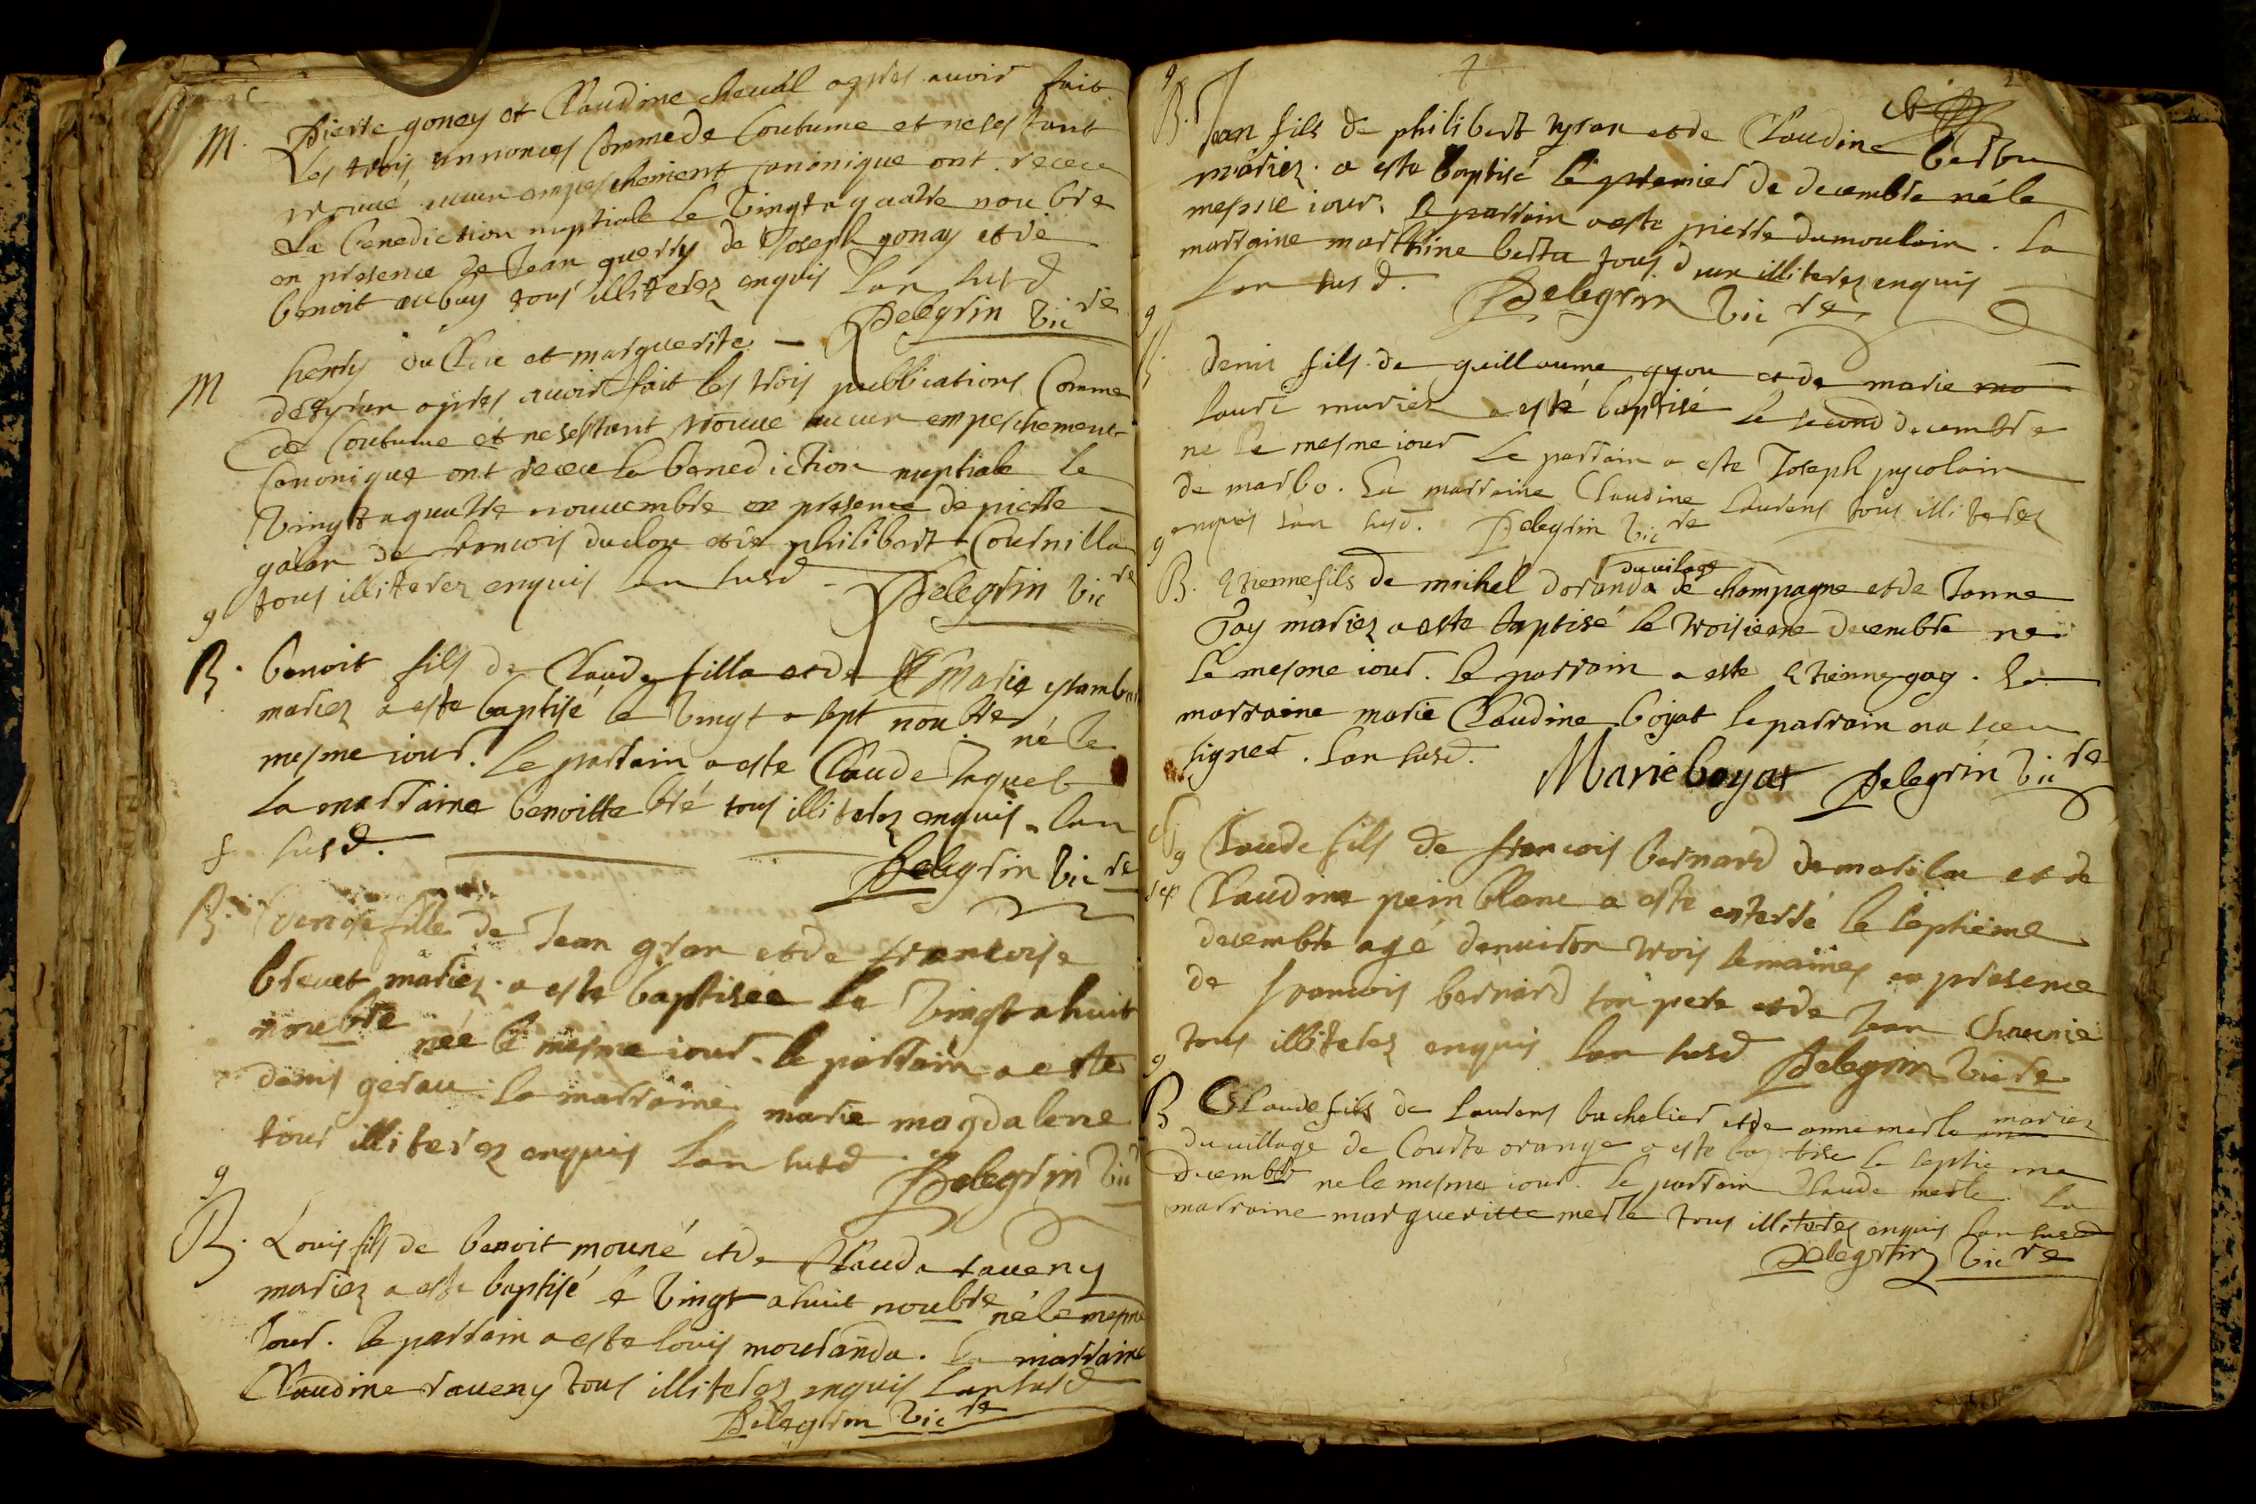 M. Pierre gonay et Claudine cheval apres avoir fait
Les trois annonces Comme de Coutume et ne sestant
trouvé aucun empeschement canonique ont receu
La benediction nuptiale le vingt a quatre noubre
en presence de Jean guerry de Joseph gonay et de
benoit aubuy tous illiterez enquis Lan susd
Pelegrin vicre
M henry du et marguerite
apres avoir fait les trois publications Comme
de Coutume et ne sestant trouve aucun empeschement
Canonique ont receu la benediction nuptiale le
vingt a quatre novembre en presence de pierre
de francois duclou et de philibert Cornilla
tous illiterez enquis lan susd Pelegrin vicre
g
B. benoit fils de Claude filla et de Marie
mariez a este baptisé le vingt a sept noubre né le
mesme iour. Le parrain a este Claude Jaquet
La marraine benoitte bré tous illiterez enquis lan
susd.
Pelegrin vicre
B. fille de Jean gran et de francoise
brevet mariez a este baptisée le vingt a huit
noubre née le mesme iour. le parrain a este
denis gerau la marraine marie magdalene
tous illiterez enquis Lan susd Pelegrin vic
g
B. Louis fils de benoit mouné et de Claude raveny
mariez a este baptisé le vingt a huit noubre né le mesme
Jour. le parrain a este louis mouranda. La marraine
Claudine raveny tous illiterez enquis Lan susd
Pelegrin vicre
g
B. Jean fils de philibert tyran et de Claudine bertu
mariez. a este baptisé le premier de decembre né le
mesme iour. le parrain a este pierre dumoulain. La
marraine marthine bertu tous illiterez enquis
Lan susd. Pelegrin vicre
g
B. denis fils de guillaume gyon et de marie
Laure mariez a esté baptisé le second decembre
né le mesme iour Le parrain a este Joseph pycolain
de marbo. La marraine Claudine Laurens tous illiterez
enquis lan susd. Pelegrin vicre
g
du vilage
B. Etienne fils de michel doranda de champagne et de Janne
Gay mariez a este baptisé le troisieme decembre né
le mesme iour. le parrain a este Etienne gay. La
marraine marie Claudine boyat le parrain na sceu
signer. Lan susd.
Marie boyat Pelegrin vicre
g
sep Claude fils de francois bernard de marilla et de
Claudine pein blanc a esté enterré le septieme
decembre agé denviron trois semaines en presence
de francois bernard son pere et de Jean
tous illiterez enquis lan susd Pelegrin vicre
g
B Claude fils de Laurens bachelier et de anne merle mariez
du village de Courte orange a este baptise le septieme
decembre né le mesme iour. le parrain Claude merle. La
marraine margueritte merle tous illiterez enquis lan susd
Pelegrin vicre